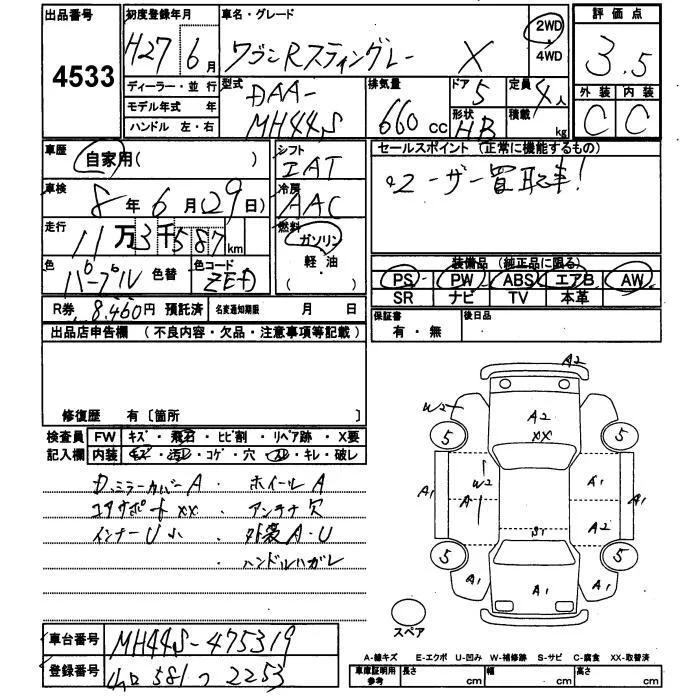 出品番号
4533
初度登録年月
H27 6月
車名・グレード
ワゴンRスティングレー X
2WD
4WD
評価点
3.5
外装 内装
C C
ディーラー・並行
モデル年式 年
ハンドル 左・右
型式
DAA-
MH44S
排気量
660cc
ドア
5
形状
HB
定員
4人
積載
kg
車歴
自家用( )
車検
8年6月(29日)
走行
11万3千587km
色
パープル 色替
色コード
ZE
シフト
IAT
冷房
AAC
燃料
ガソリン
軽油
( )
セールスポイント (正常に機能するもの)
ユーザー買取車!
装備品 (純正品に限る)
PS PW ABS エアB AW
SR ナビ TV 本革
R券 8,460円 預託済
名変通知期限 月 日
保証書
有・無
後日品
出品店申告欄 (不良内容・欠品・注意事項等記載)
修復歴 有〔箇所 〕
検査員 FW キズ・飛石・ヒビ割・リペア跡・X要
記入欄 内装 キズ・汚レ・コゲ・穴・スレ・キレ・破レ
D.ミラーカバーA・ホイールA
コアサポートXX・アンテナ欠
インナーU小・外装A・U
・ハンドルハガレ
A2
W2
A2
XX
5
5
A1
W2
A
A1
A2
A1
S1
5
5
A1
A1
A1
スペア
車台番号 MH44S-475319
登録番号 581 つ 2253
A-線キズ E-エクボ U-凹み W-補修跡 S-サビ C-腐食 XX-取替済
車庫証明用
参考
長さ cm
幅 cm
高さ cm